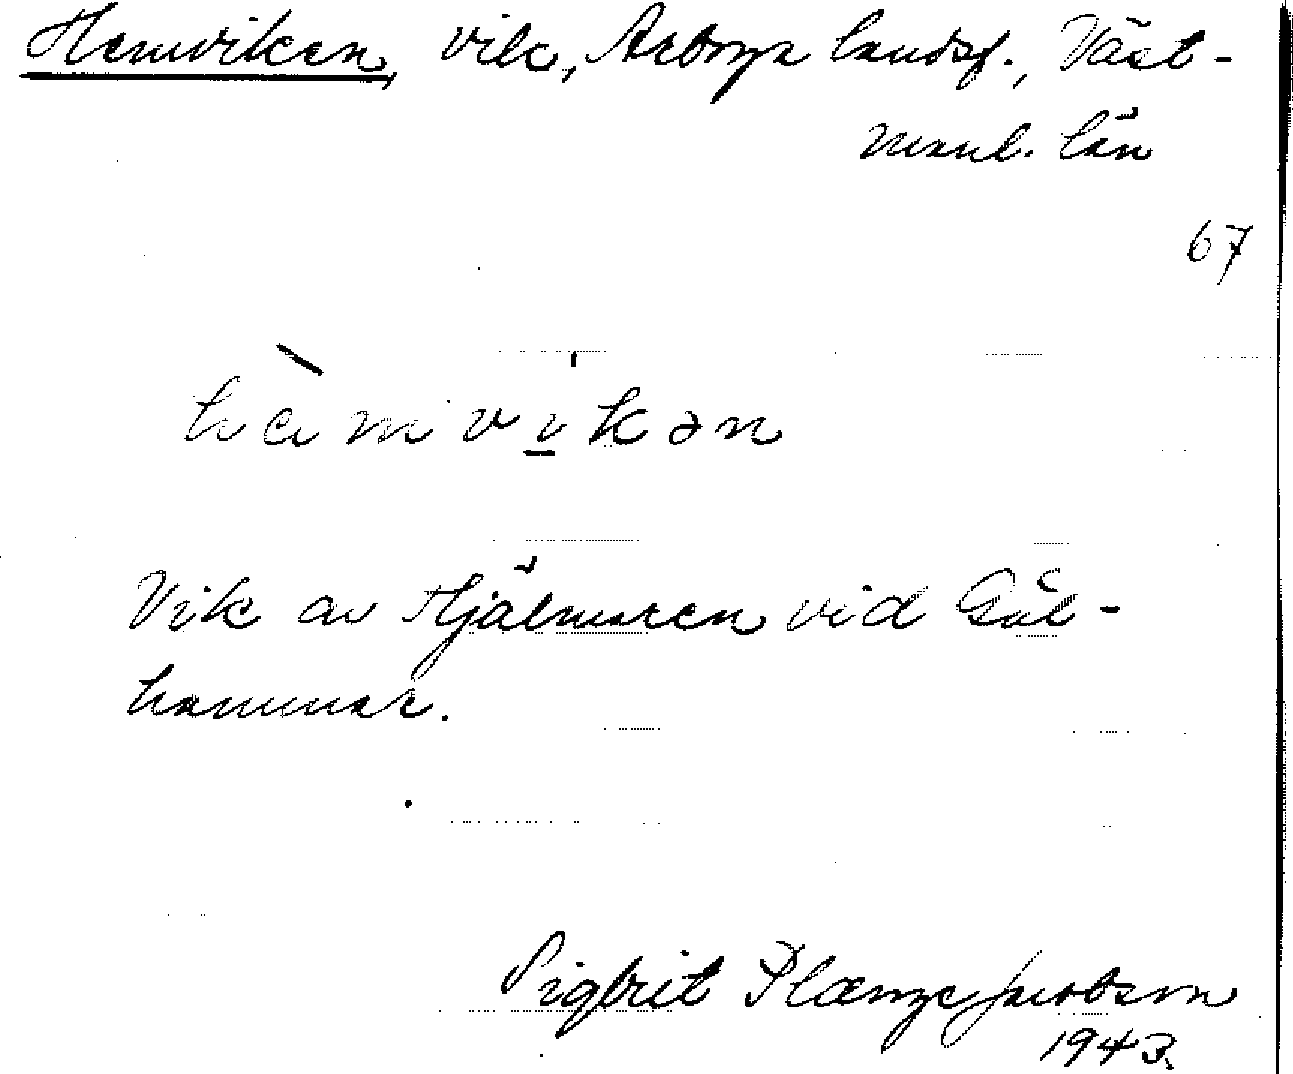 Hemviken, vik, Arboga landsf., Väst-
manl. län
67
hæ̀mvikən
Vik av Hjälmaren vid Gäl-
hammar.
Sigbrit Plænge Jacobson
1943.